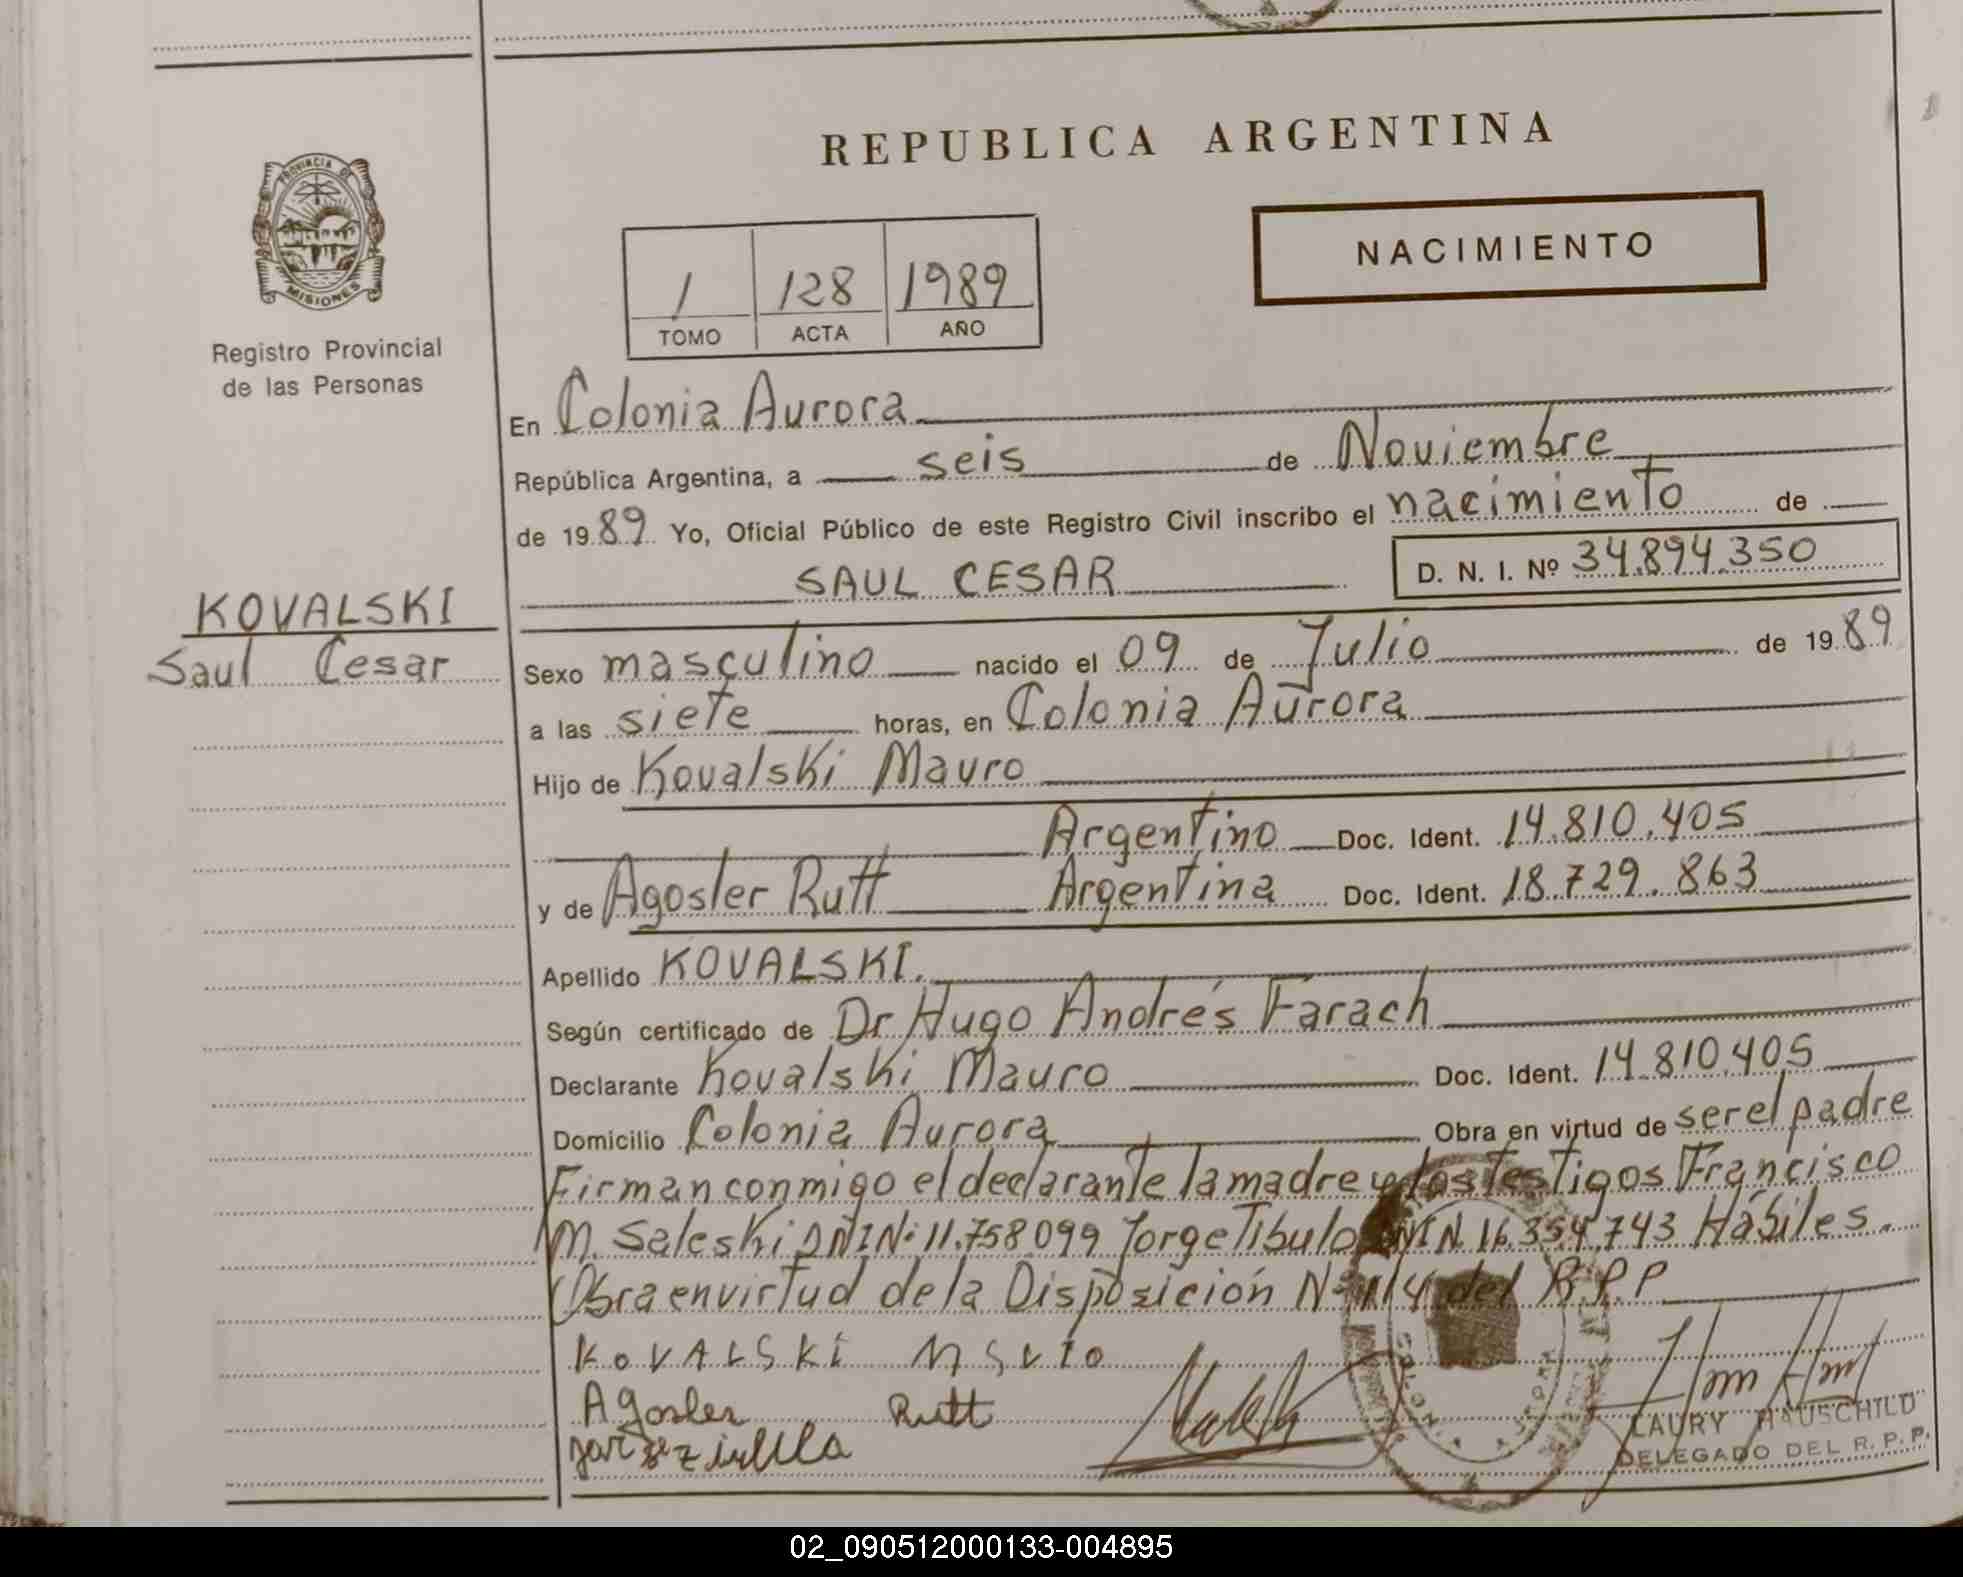 REPUBLICA ARGENTINA
NACIMIENTO
PROVINCIA DE MISIONES
Registro Provincial
de las Personas
1 128 1989
TOMO ACTA AÑO
En Colonia Aurora
República Argentina, a seis de Noviembre
de 1989 Yo, Oficial Público de este Registro Civil inscribo el nacimiento de
SAUL CESAR D. N. I. Nº 34.894.350
KOVALSKI
Saul Cesar
Sexo masculino nacido el 09 de Julio de 1989
a las siete horas, en Colonia Aurora
Hijo de Kovalski Mauro
Argentino Doc. Ident. 14.810.405
y de Agosler Rutt Argentina Doc. Ident. 18.729.863
Apellido KOVALSKI.
Según certificado de Dr Hugo Andrés Farach
Declarante Kovalski Mauro Doc. Ident. 14.810.405
Domicilio Colonia Aurora Obra en virtud de ser el padre
Firman conmigo el declarante la madre y los testigos Francisco
M. Saleski DNI Nº 11.758.099 Jorge Tibulo DNI N. 16.354.743 Hábiles.
Obra en virtud de la Disposición Nº 114 del R.P.P
KOVALSKI
Agosler Rutt
COLONIA AURORA
LAURY HAUSCHILD
DELEGADO DEL R. P. P.
02_090512000133-004895